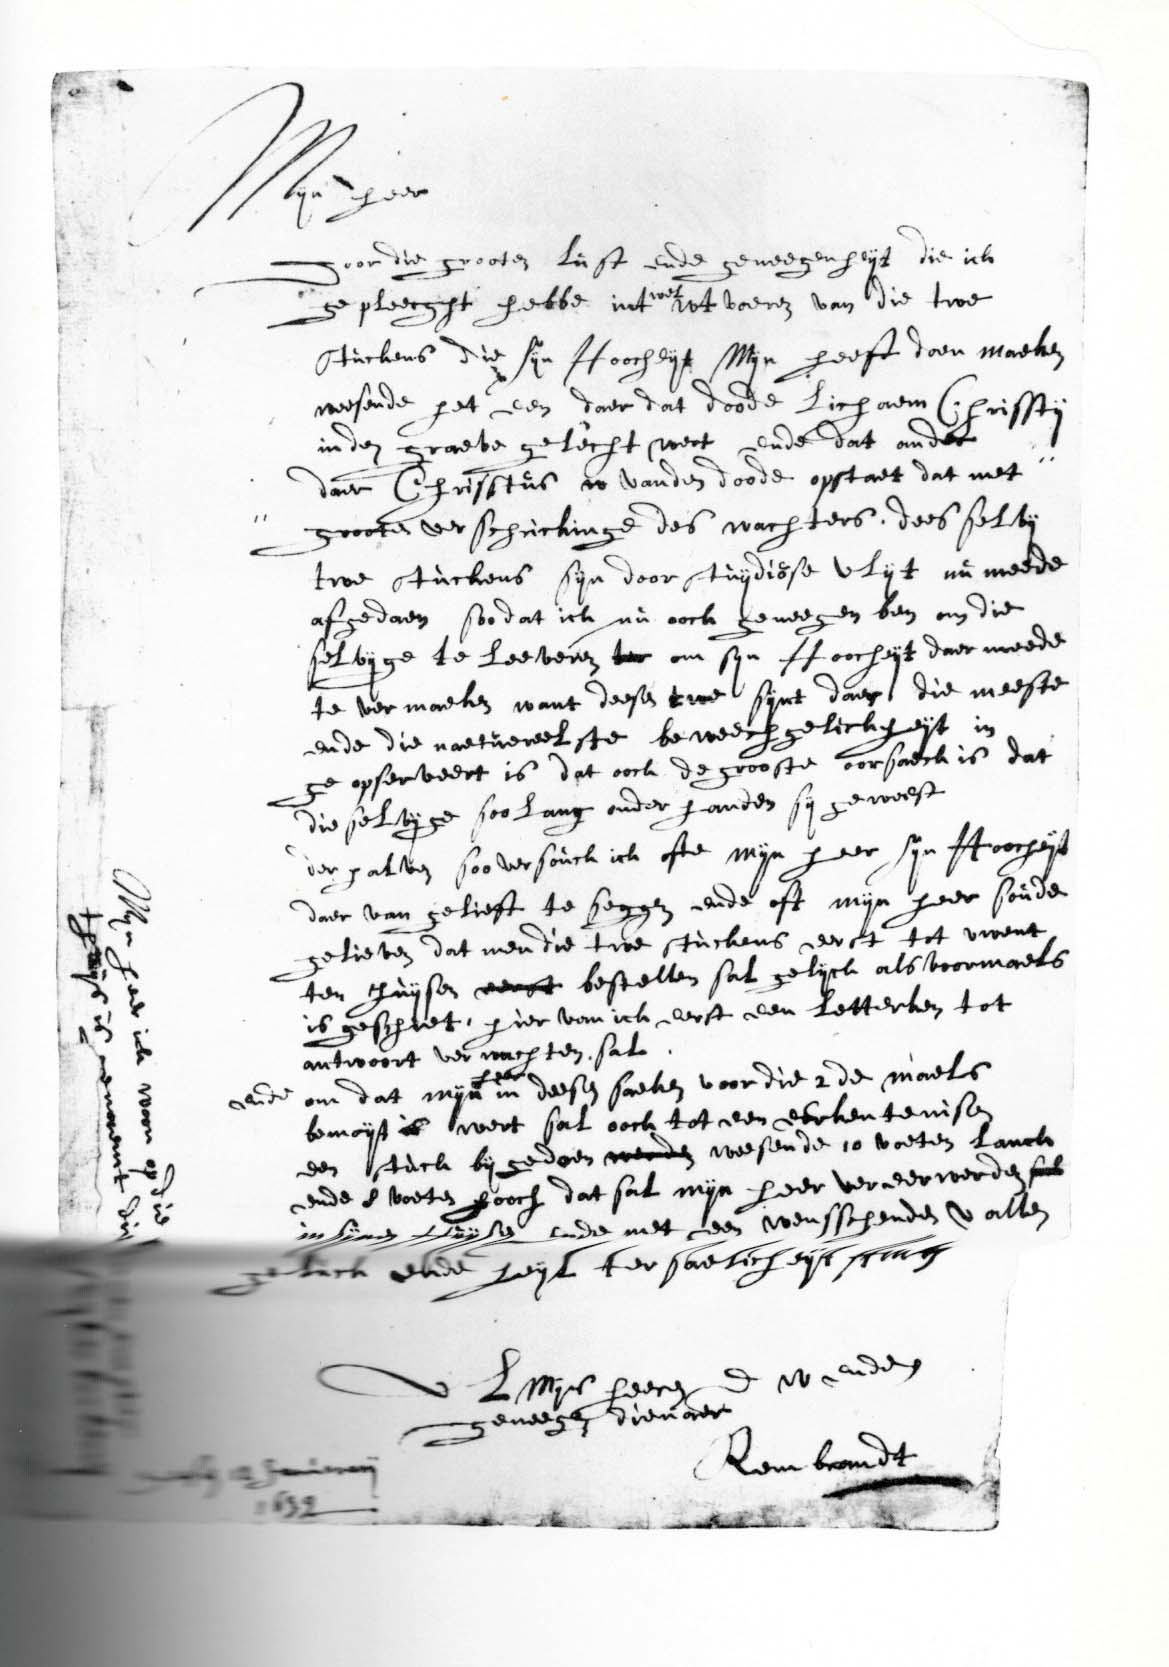 Mijn heer
door die grooten lust ende geneegenheijt die ick
gepleecght hebbe int wel wt voeren van die twe
stuckens die sijn Hoocheijt mijn heeft doen maeken
weesende het een daer dat doode lichaem Chrissty
in den graeve gelecht wert ende dat ander
daer Chrisstus van den doode opstaet dat met
grooten verschrickinge des wachters. dees selvij
twe stuckens sijn door stuydiose vlijt nu meede
afgedaen soodat ick nu ook geneegen ben om die
selvijge te leeveren om sijn Hoocheijt daer meede
te vermaeken want deesen twe sijnt daer die meeste
ende die naetuereelste beweechgelickheijt in
geopserveert is dat oock de grooste oorsaeck is dat
die selvijge soo lang onder handen sij geweest
derhalven soo versouck ick ofte mijn heer sijn Hoocheijt
daer van gelieft te seggen ende oft mijn heer soude
gelieven dat men die twe stuckens eerst tot uwent
ten huijsen bestellen sal gelijck als voormaels
is geschiet. hier van ick eerst een letterken tot
antwoort verwachten sal.
ende om dat mijn heer in deesen saeken voor die 2de maels
bemoijt wert sal oock tot een eerkentenisen
een stuck bij gedaen weesende 10 voeten lanck
ende 8 voeten hooch dat sal mijn heer vereerwerden
in sijnen Huijsen ende met een wensschenden u allen
geluck ende heijl ter saelicheijt
U L mijn heeren D W ende
geneegen dienaer
Rembrandt
12 Januwarij
1639
Mijn heer ick woon op die
thuijs is genaemt